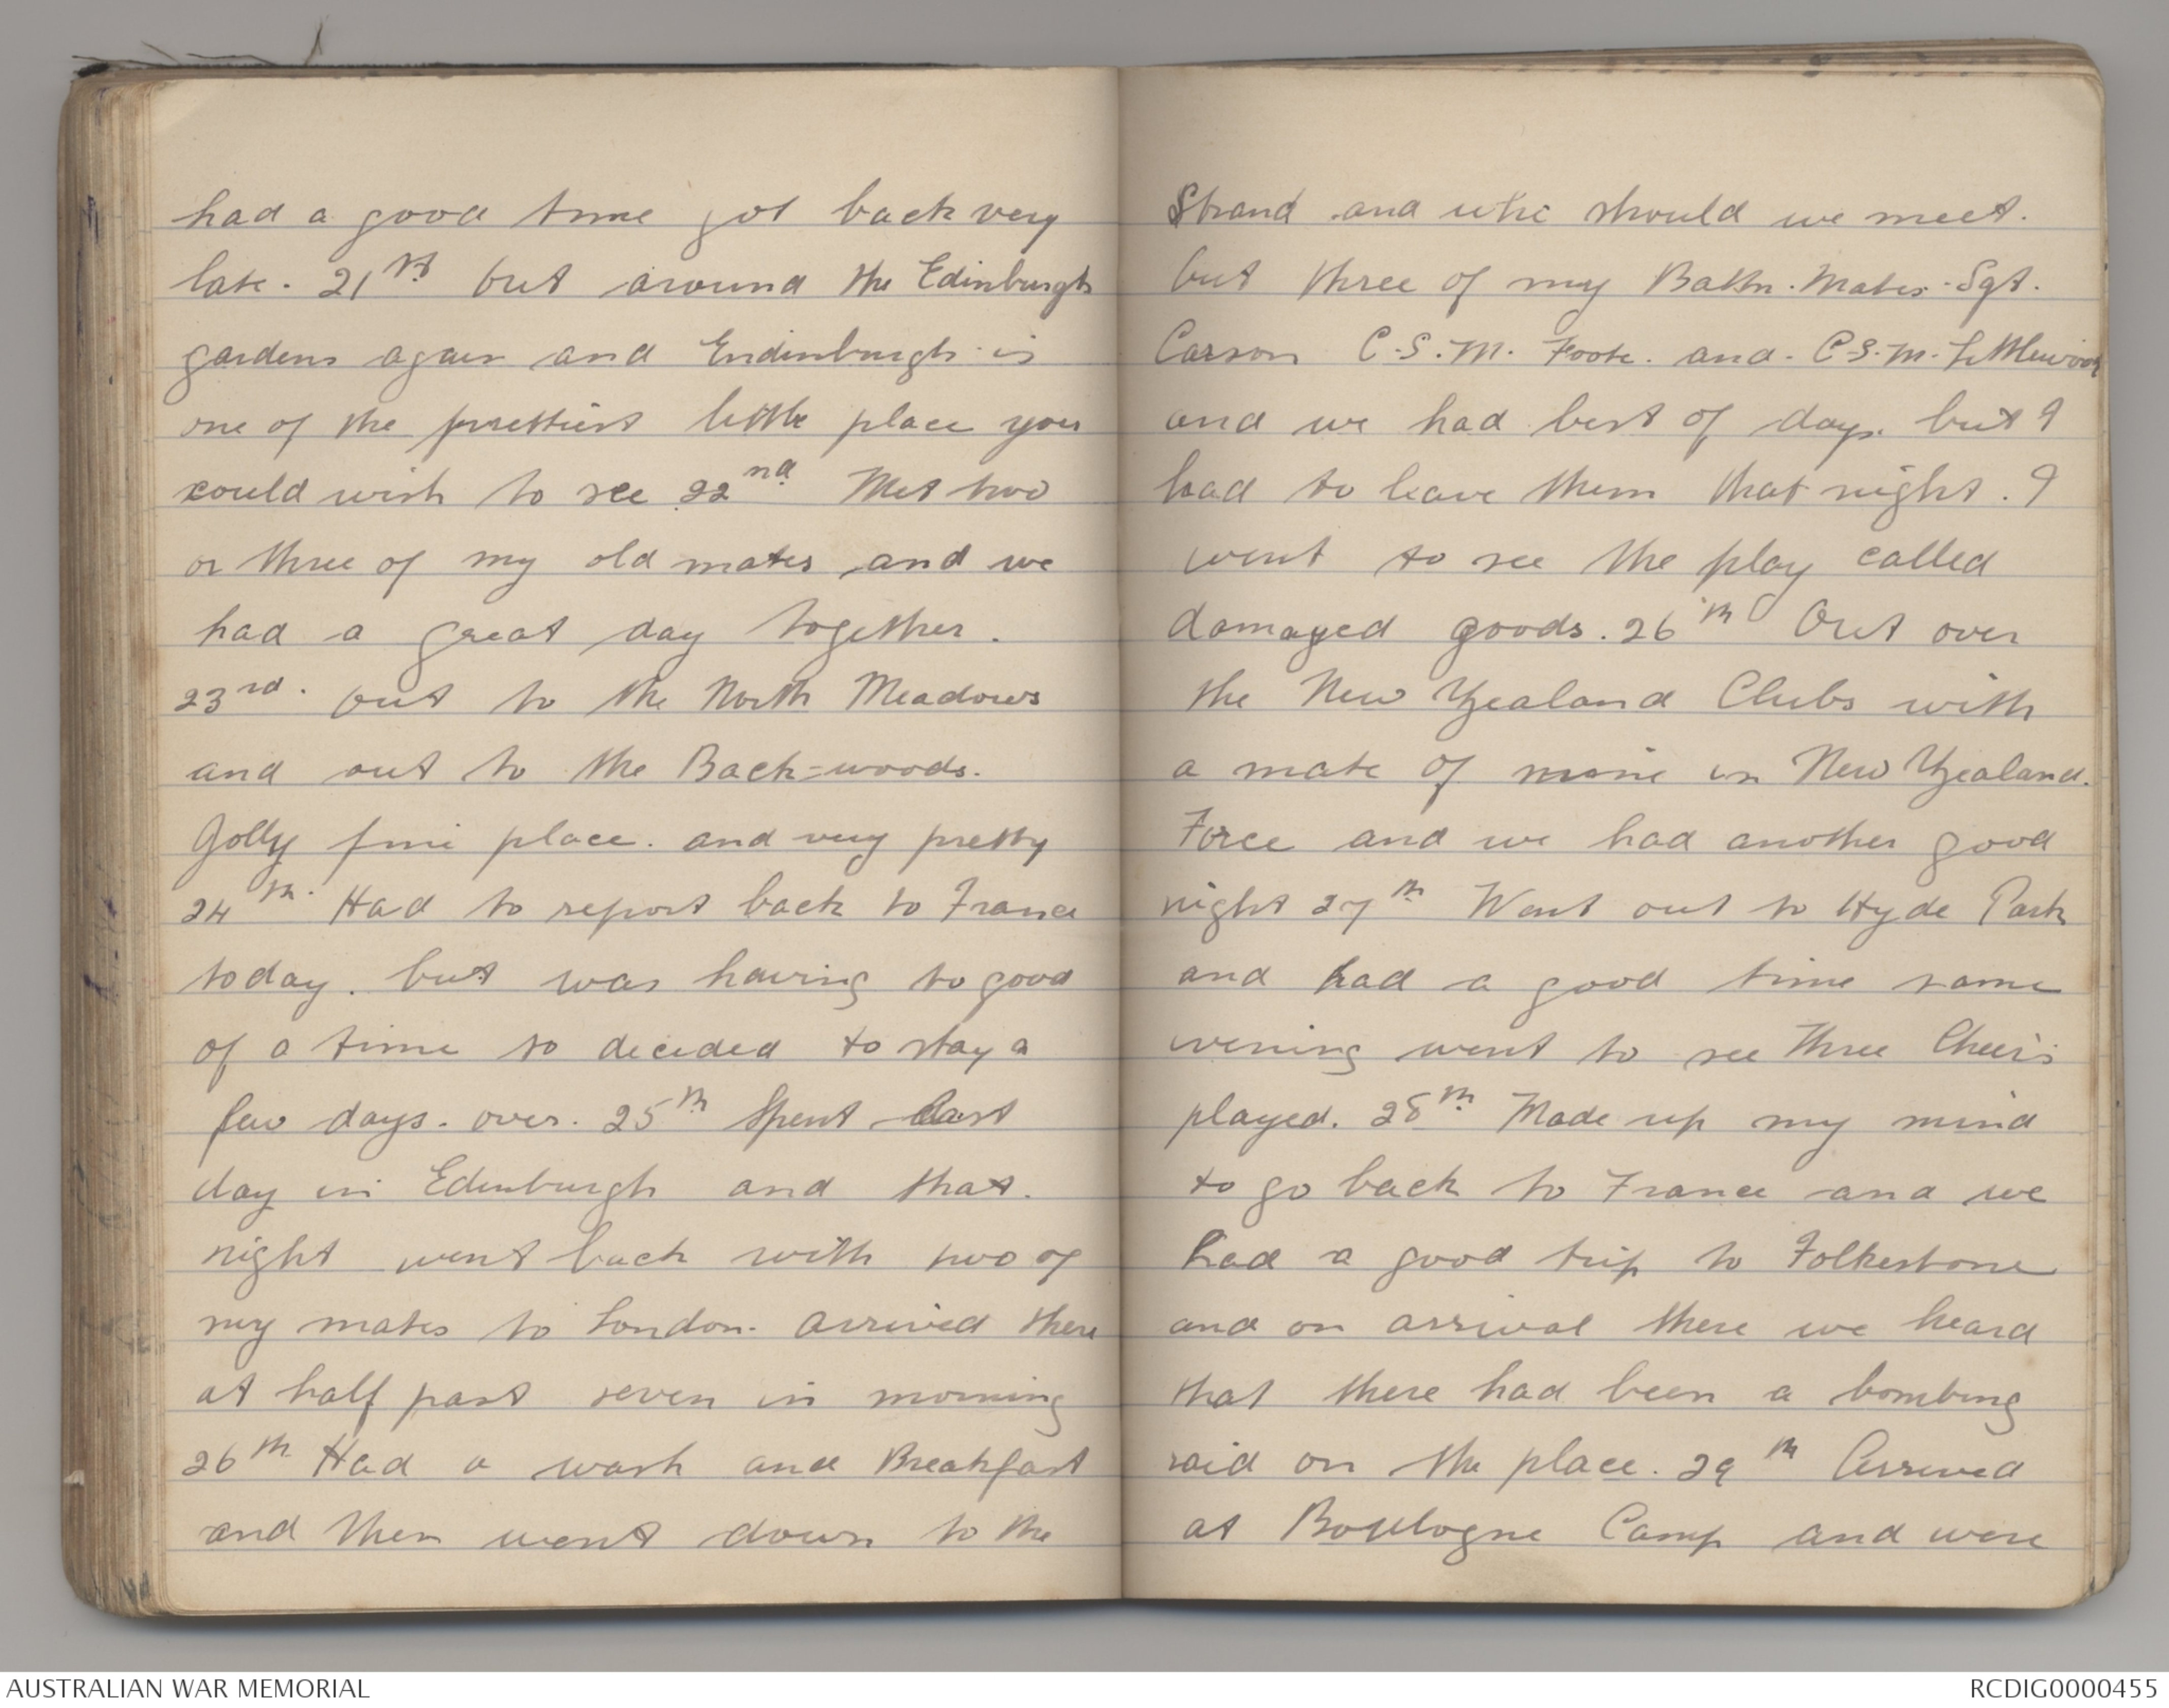 had a good time got back very
late. 21st Out around the Edinburgh
gardens again and Endinburgh is
one of the prettiest little place you
could wish to see 22nd Met two
or three of my old mates and we
had a great day together.
23rd. Out to the North Meadows
and out to the Back-woods.
Jolly fine place. and very pretty
24th. Had to report back to France
today. but was having to good
of a time so decided to stay a
few days. over. 25th Spent last
day in Edinburgh and that.
night went back with two of
my mates to London. Arrived there
at half past seven in morning
26th Had a wash and Breakfast
and then went down to the
Strand and who should we meet.
but three of my Battn. Mates. Sgt.
Carson C.S.M. Foote. and. C.S.M. Littlewood
and we had best of days. but I
had to leave them that night. I
went to see the play called
damaged goods. 26th Out over
the New Zealand Clubs with
a mate of mine in New Zealand.
Force and we had another good
night 27th Went out to Hyde Park
and had a good time same
evening went to see Three Cheers
played. 28th Made up my mind
to go back to France and we
had a good trip to Folkestone
and on arrival there we heard
that there had been a bombing
raid on the place. 29th Arrived
at Boulogne Camp and were
AUSTRALIAN WAR MEMORIAL
RCDIG0000455